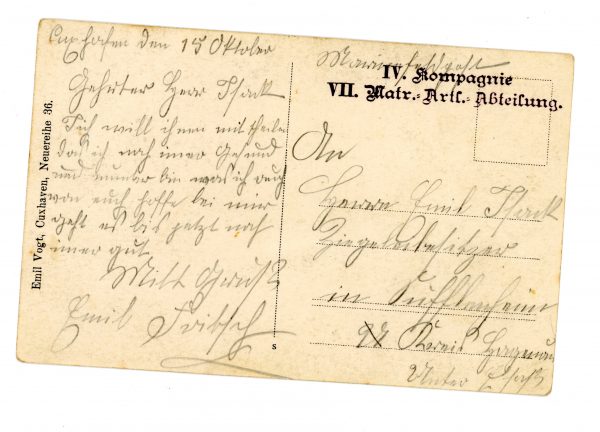 Cuxhafen den 15 Oktober
Gehrter Herr Isack
Ich will ihnen mit theilen
das ich noch imer Gesund
und munter bin was ich auch
von euch hoffe bei mir
geht es bis jetzt noch
imer gut
Mitt Gruß
Emil Fritsch
Emil Vogt, Cuxhaven, Neuereihe 36.
s
Marinefeldpost
IV. Kompagnie
VII. Matr.-Artl.-Abteilung.
An
Herrn Emil Isack
Ziegeleibesitzer
in Sufflenheim
Kreis Hagenau
Unter Elsaß